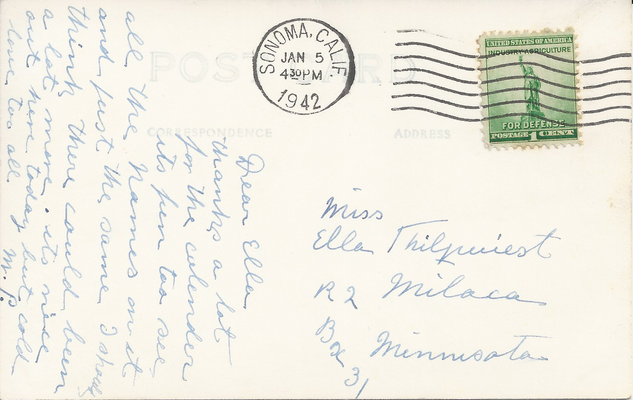 POST CARD
CORRESPONDENCE
ADDRESS
SONOMA, CALIF.
JAN 5
4 30 PM
1942
UNITED STATES OF AMERICA
INDUSTRY-AGRICULTURE
FOR DEFENSE
POSTAGE 1 CENT
Dear Ella
thanks a lot
for the calender
its fun too see
all the names on it
and just the same I
think there could been
a lot more. its nice
out here today but cold
love too all
Miss
Ella
R 2 Milaca
Box 31 Minnisota